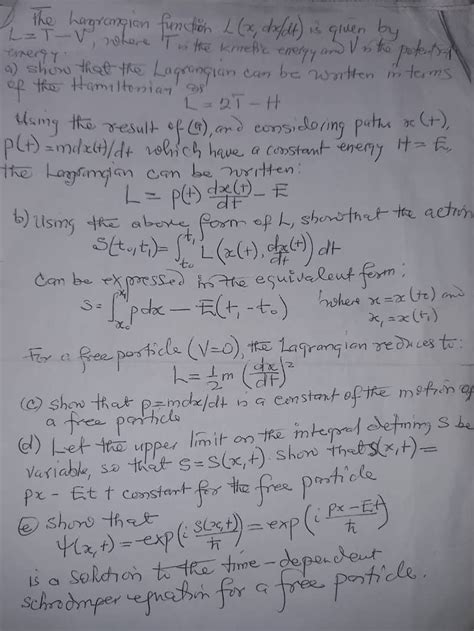 1) The Lagrangian function L(x, dx/dt) is given by
L = T - V, where T is the kinetic energy and V is the potential
energy.
a) show that the Lagrangian can be written in terms
of the Hamiltonian as
L = 2T - H
Using the result of (a), and considering paths x(t),
p(t) = mdx(t)/dt which have a constant energy H = E,
the Lagrangian can be written:
L = p(t) dx(t)/dt - E
b) Using the above form of L, show that the action
S(t₀,t₁) = ∫_{t₀}^{t₁} L(x(t), dx(t)/dt) dt
can be expressed in the equivalent form:
S = ∫_{x₀}^{x₁} pdx - E(t₁ - t₀) where x = x(t₀) and
x₁ = x(t₁)
For a free particle (V=0), the Lagrangian reduces to:
L = 1/2 m (dx/dt)²
(c) show that p = mdx/dt is a constant of the motion of
a free particle
(d) Let the upper limit on the integral defining S be
variable, so that S = S(x,t). show that S(x,t) =
px - Et + constant for the free particle
(e) show that
Ψ(x,t) = exp(i S(x,t)/ħ) = exp(i (px - Et)/ħ)
is a solution to the time-dependent
Schrodinger equation for a free particle.